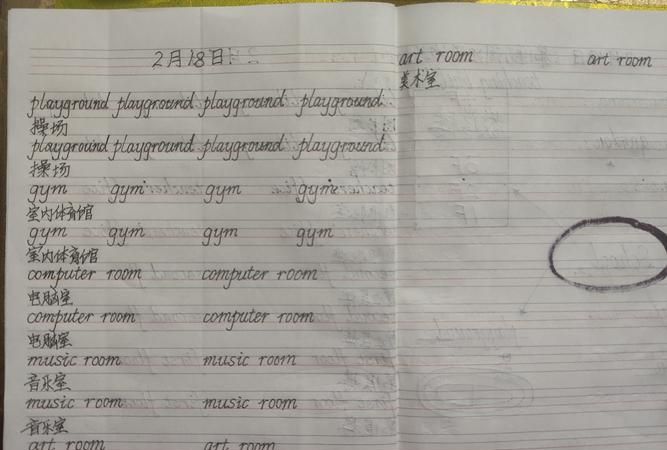 2月18日
playground playground playground playground
操场
playground playground playground playground
操场
gym gym gym gym
室内体育馆
gym gym gym gym
室内体育馆
computer room computer room
电脑室
computer room computer room
电脑室
music room music room
音乐室
music room music room
音乐室
art room art room
art room art room
美术室